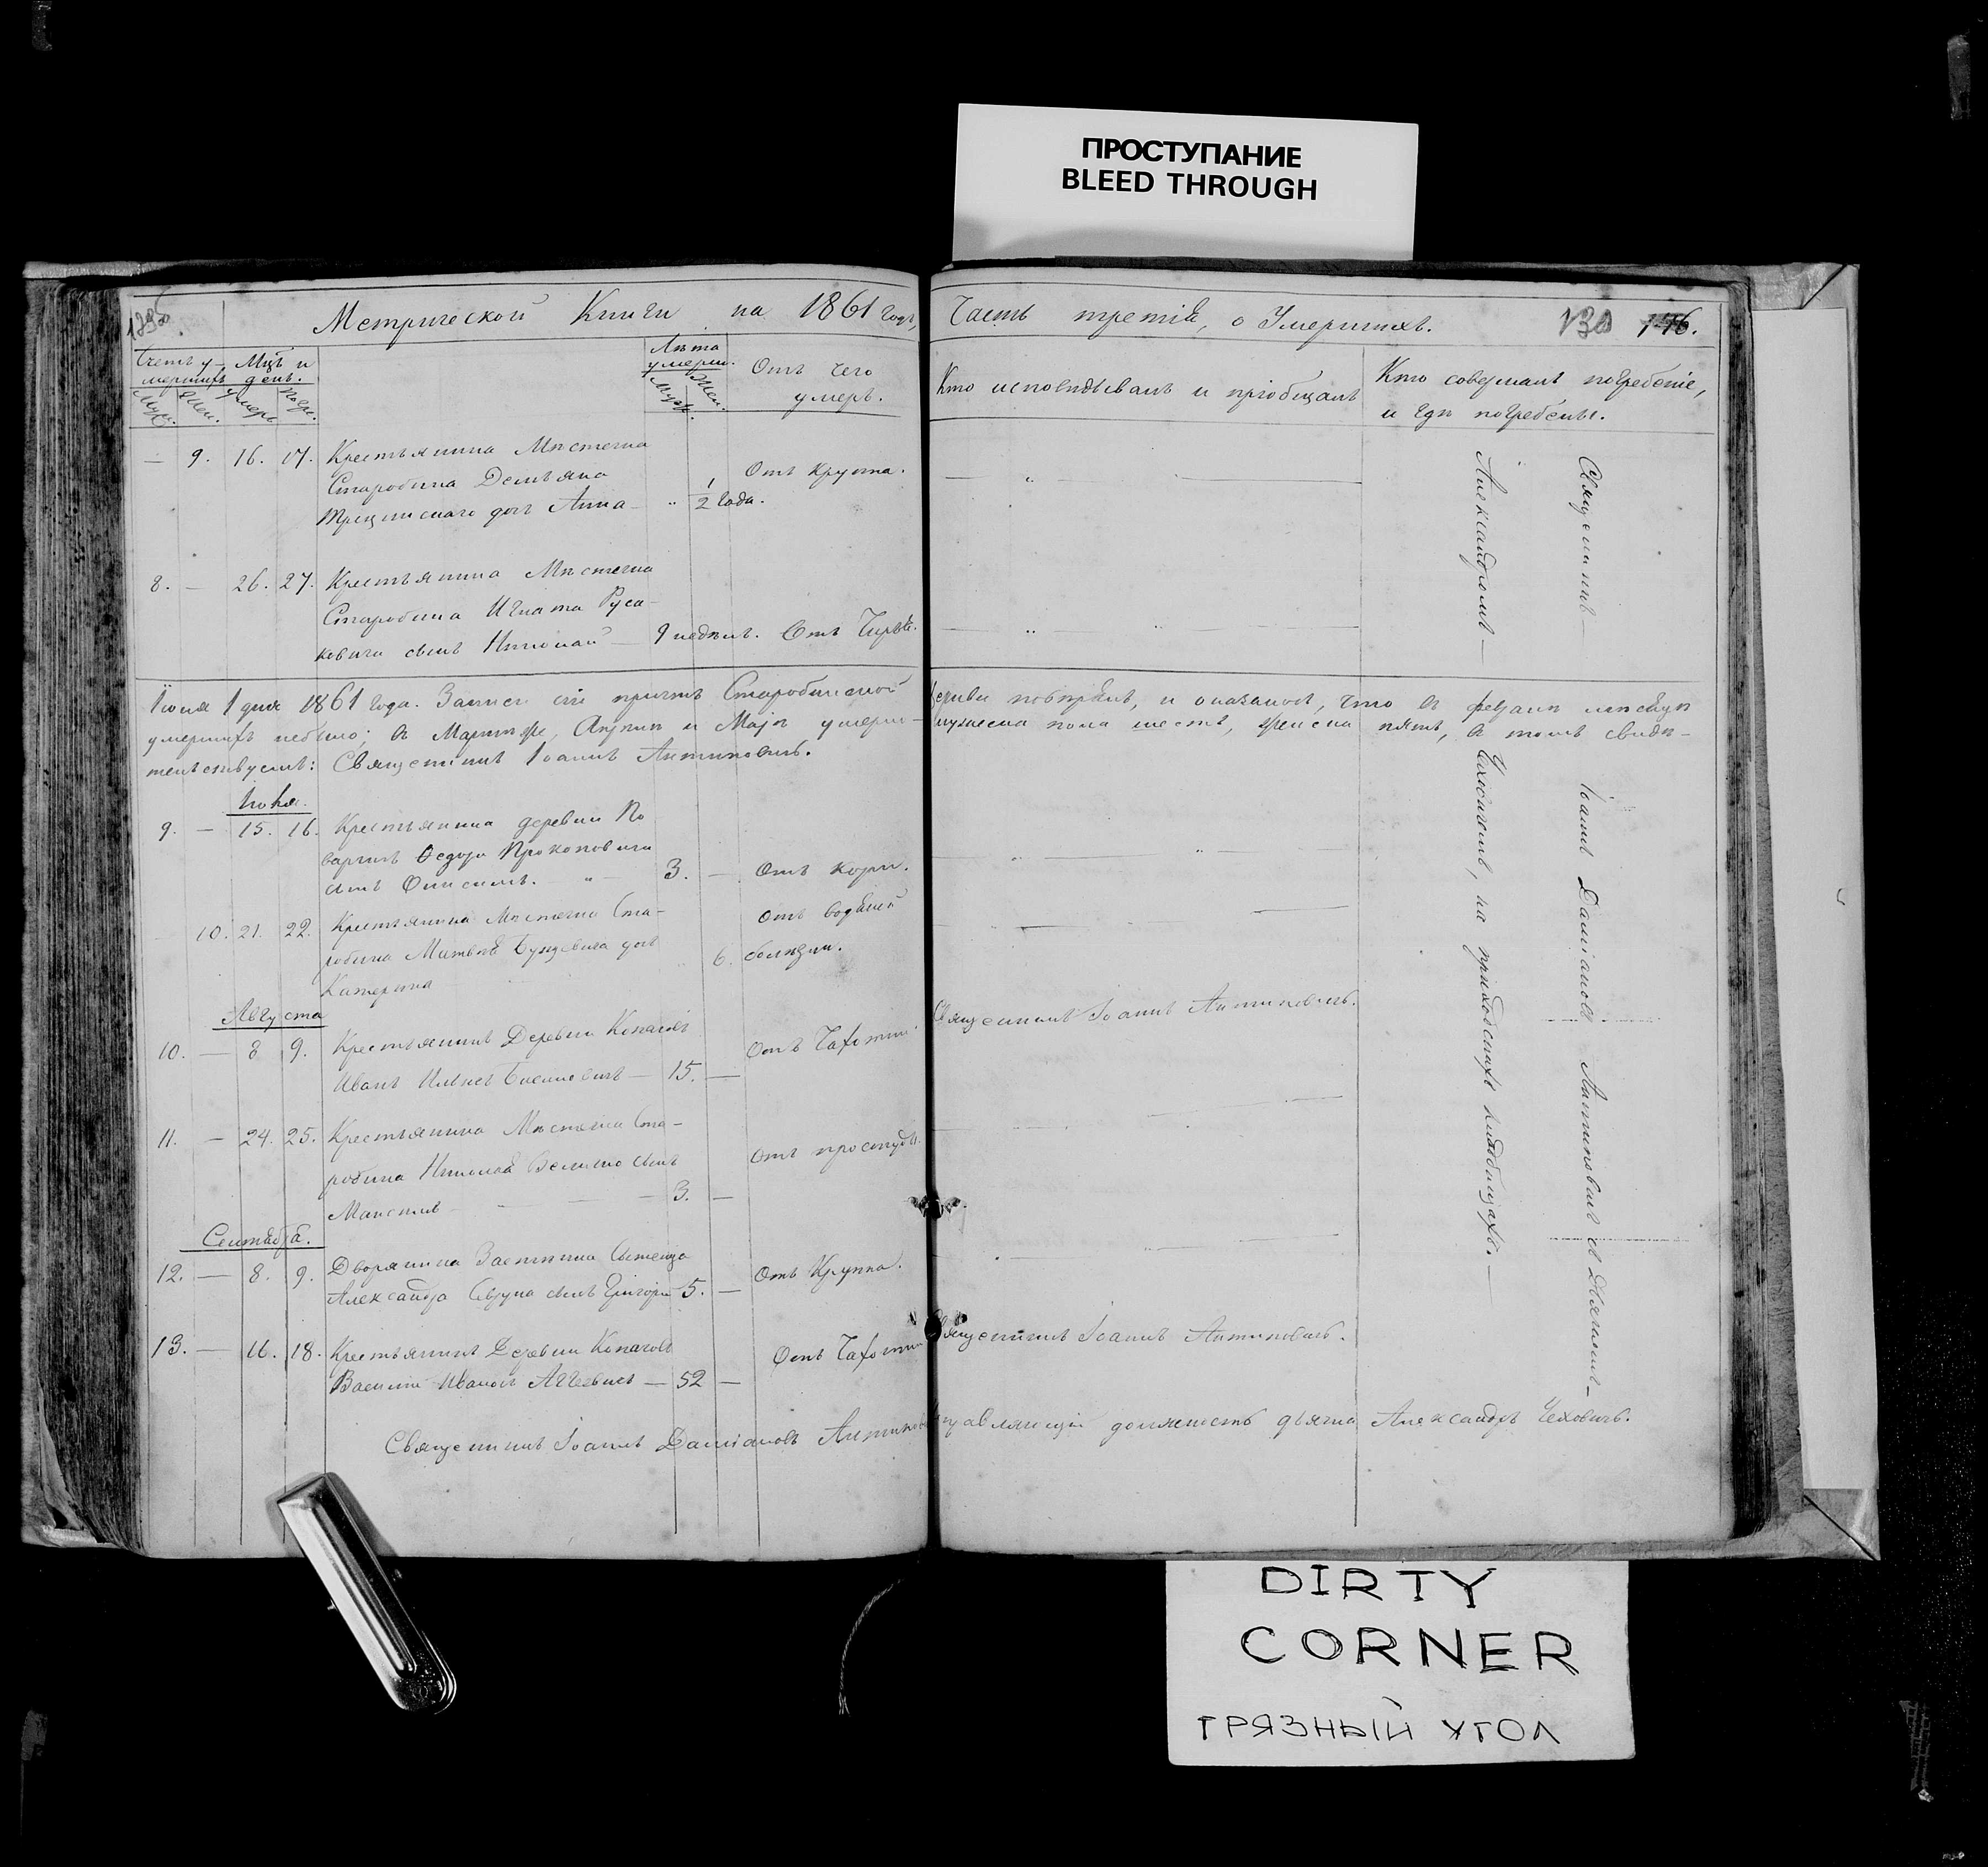 ПРОСТУПАНИЕ
BLEED THROUGH
Метрической Книги на 1861 годъ,
Часть третія, о Умершихъ.
146.
Счетъ у-
мершихъ
Мцъ и
день.
Муж.
Жен.
умеръ
Погр.
Лѣта
умерш.
Муж.
Жен.
Отъ чего
умеръ.
Кто исповѣдывалъ и пріобщалъ
Кто совершалъ погребеніе,
и гдѣ погребены.
— 9. 16. 17. Крестьянина Мѣстечка
Старобина Демьяна
дочь Анна — " 1/2 года. Отъ Крупа.
8. — 26. 27. Крестьянина Мѣстечка
Старобина Игната Руса-
ковича сынъ Николай — 9 недѣль. Отъ
Іюня 1 дня 1861 года. Записи сіи причтъ Старобинской
Церкви повѣрялъ, и оказалось, что въ
умершихъ небыло; въ Мартѣ же, Апрѣлѣ и Маѣ умерш-
мужеска пола шесть, женска пять, въ томъ свидѣ-
тельствуемъ: Священникъ Іоаннъ Антиповичъ.
9. — 15. 16. Крестьянина деревни По
варчичъ Ѳедора Прокоповича
сынъ Онисимъ. — " — 3. — Отъ кори.
10. 21. 22. Крестьянина Мѣстечка Ста-
робина Матвѣя дочь
Катерина
6. Отъ водяной
болѣзни.
Августа
10. — 8 9. Крестьянинъ Деревни
Иванъ — 15. — Отъ Чахотки
Священникъ Іоаннъ Антиповичъ.
11. — 24. 25. Крестьянина Мѣстечка Ста-
робина Николая сынъ
— 3. — Отъ простуды.
Сентября.
12. — 8. 9. Дворянина
Александра сынъ Григорій 5. — Отъ Крупа.
13. — 16. 18. Крестьянинъ Деревни
Василій Ивановъ — 52 — Отъ Чахотки
Священникъ Іоаннъ Антиповичъ.
Священникъ Іоаннъ Даміановъ
должность дьячка Александръ Чеховичъ.
Священникъ — Іоаннъ Даміановъ Антиповичъ съ Дьячкомъ —
Александромъ — на приходскихъ кладбищахъ. —
DIRTY
CORNER
ГРЯЗНЫЙ УГОЛ